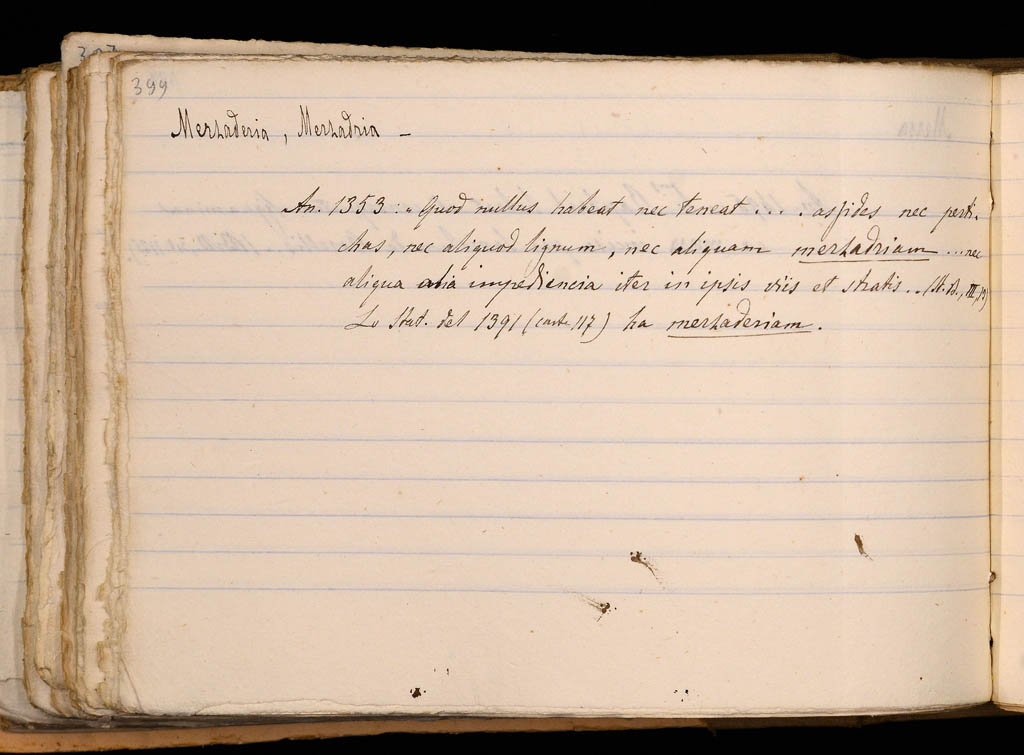 399
Merzaderia, Merzadria –
An. 1353: « Quod nullus habeat nec teneat . . . . assides nec perti-
chas, nec aliquod lignum, nec aliquam merzadriam ... nec
aliqua alia impediencia iter in ipsis viis et stratis. » (St. B., III,
Lo Stat. del 1391 (carte 117) ha merzaderiam.